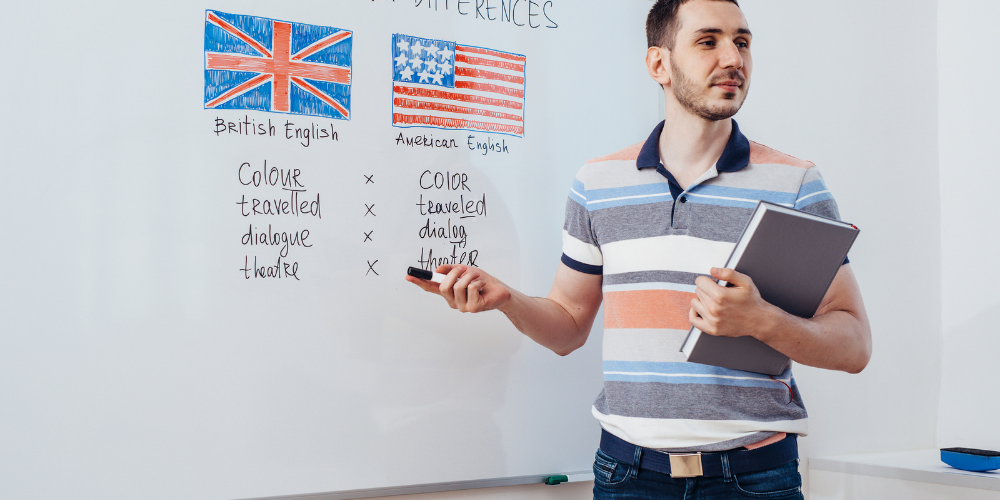 DIFFERENCES
British English
American English
Colour x COlOR
travelled x traveled
dialogue x dialog
theatre x theater